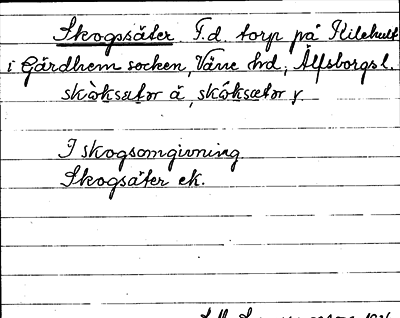 Skogsäter T.d. torp på Kilehult
i Gärdhem socken, Väne hd, Älfsborgs l.
skòksætər ä, skóksætər y
I skogsomgivning
Skogsäter ek.